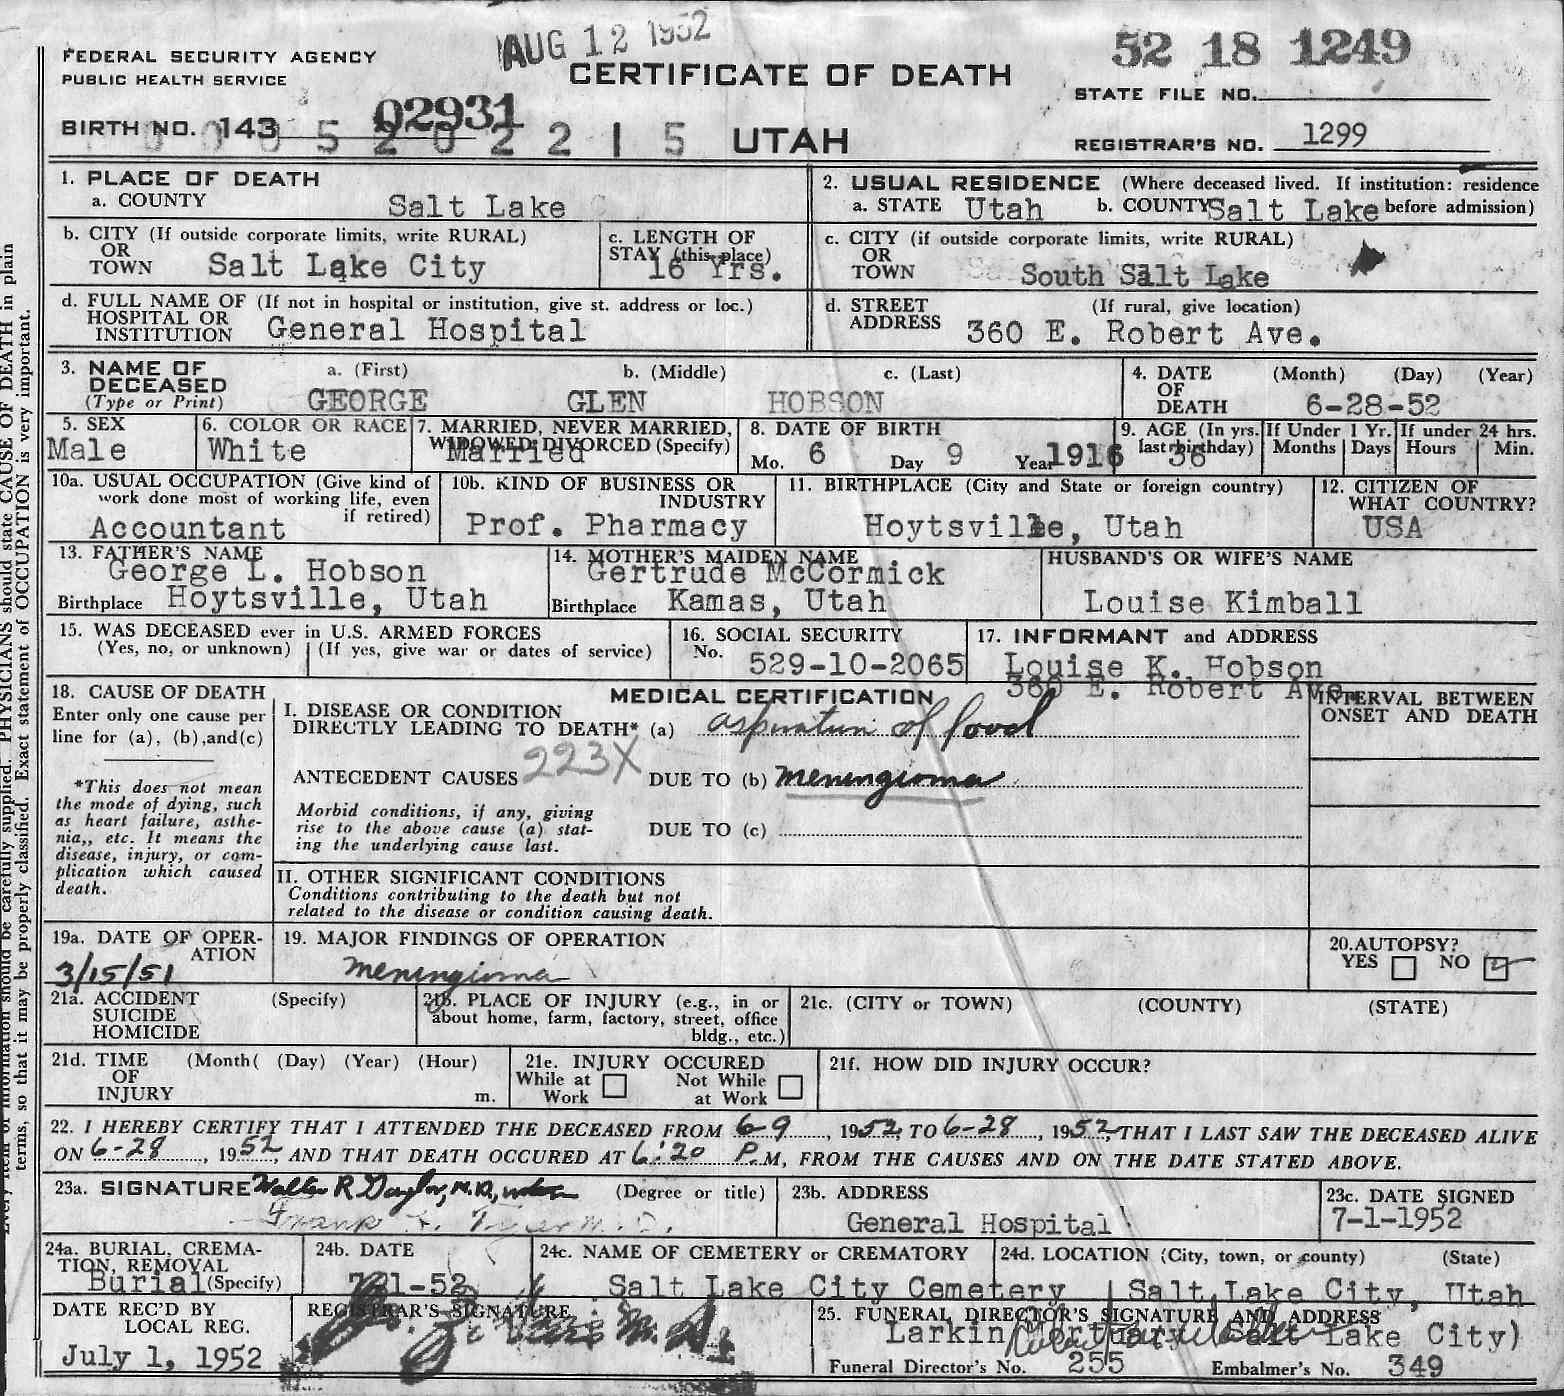 AUG 12 1952
52 18 1249
FEDERAL SECURITY AGENCY
PUBLIC HEALTH SERVICE
CERTIFICATE OF DEATH
STATE FILE NO.
BIRTH NO. 143
02931
5 2 0 2 2 1 5
UTAH
REGISTRAR'S NO. 1299
1. PLACE OF DEATH
a. COUNTY Salt Lake
2. USUAL RESIDENCE (Where deceased lived. If institution: residence
a. STATE Utah b. COUNTY Salt Lake before admission)
b. CITY (If outside corporate limits, write RURAL)
OR
TOWN Salt Lake City
c. LENGTH OF
STAY (this place)
16 Yrs.
c. CITY (if outside corporate limits, write RURAL)
OR
TOWN South Salt Lake
d. FULL NAME OF (If not in hospital or institution, give st. address or loc.)
HOSPITAL OR
INSTITUTION General Hospital
d. STREET (If rural, give location)
ADDRESS 360 E. Robert Ave.
3. NAME OF
DECEASED
(Type or Print)
a. (First) b. (Middle) c. (Last)
GEORGE GLEN HOBSON
4. DATE (Month) (Day) (Year)
OF
DEATH 6-28-52
5. SEX
Male
6. COLOR OR RACE
White
7. MARRIED, NEVER MARRIED,
WIDOWED, DIVORCED (Specify)
Married
8. DATE OF BIRTH
Mo. 6 Day 9 Year 1916
9. AGE (In yrs.
last birthday)
36
If Under 1 Yr.
Months Days
If under 24 hrs.
Hours Min.
10a. USUAL OCCUPATION (Give kind of
work done most of working life, even
if retired)
Accountant
10b. KIND OF BUSINESS OR
INDUSTRY
Prof. Pharmacy
11. BIRTHPLACE (City and State or foreign country)
Hoytsville, Utah
12. CITIZEN OF
WHAT COUNTRY?
USA
13. FATHER'S NAME
George L. Hobson
Birthplace Hoytsville, Utah
14. MOTHER'S MAIDEN NAME
Gertrude McCormick
Birthplace Kamas, Utah
HUSBAND'S OR WIFE'S NAME
Louise Kimball
15. WAS DECEASED ever in U.S. ARMED FORCES
(Yes, no, or unknown) (If yes, give war or dates of service)
16. SOCIAL SECURITY
No. 529-10-2065
17. INFORMANT and ADDRESS
Louise K. Hobson
360 E. Robert Ave.
18. CAUSE OF DEATH
Enter only one cause per
line for (a), (b),and(c)
*This does not mean
the mode of dying, such
as heart failure, asthe-
nia,, etc. It means the
disease, injury, or com-
plication which caused
death.
MEDICAL CERTIFICATION
INTERVAL BETWEEN
ONSET AND DEATH
I. DISEASE OR CONDITION
DIRECTLY LEADING TO DEATH* (a) aspiration of food
223X
ANTECEDENT CAUSES DUE TO (b) meningioma
Morbid conditions, if any, giving
rise to the above cause (a) stat-
ing the underlying cause last.
DUE TO (c)
II. OTHER SIGNIFICANT CONDITIONS
Conditions contributing to the death but not
related to the disease or condition causing death.
19a. DATE OF OPER-
ATION
3/15/51
19. MAJOR FINDINGS OF OPERATION
meningioma
20.AUTOPSY?
YES NO
21a. ACCIDENT (Specify)
SUICIDE
HOMICIDE
21b. PLACE OF INJURY (e.g., in or
about home, farm, factory, street, office
bldg., etc.)
21c. (CITY or TOWN) (COUNTY) (STATE)
21d. TIME (Month( (Day) (Year) (Hour)
OF
INJURY m.
21e. INJURY OCCURED
While at Work
Not While at Work
21f. HOW DID INJURY OCCUR?
22. I HEREBY CERTIFY THAT I ATTENDED THE DECEASED FROM 6-9, 1952, TO 6-28, 1952, THAT I LAST SAW THE DECEASED ALIVE
ON 6-28, 1952, AND THAT DEATH OCCURED AT 6:20 P.M, FROM THE CAUSES AND ON THE DATE STATED ABOVE.
23a. SIGNATURE Walter R Gaylor, M.D. (Degree or title)
Frank
23b. ADDRESS
General Hospital
23c. DATE SIGNED
7-1-1952
24a. BURIAL, CREMA-
TION, REMOVAL
Burial (Specify)
24b. DATE
7-1-52
24c. NAME OF CEMETERY or CREMATORY
Salt Lake City Cemetery
24d. LOCATION (City, town, or county) (State)
Salt Lake City, Utah
DATE REC'D BY
LOCAL REG.
July 1, 1952
REGISTRAR'S SIGNATURE
25. FUNERAL DIRECTOR'S SIGNATURE AND ADDRESS
Larkin Mortuary Salt Lake City)
Funeral Director's No. 255 Embalmer's No. 349
terms, so that it may be properly classified. Exact statement of OCCUPATION is very important.